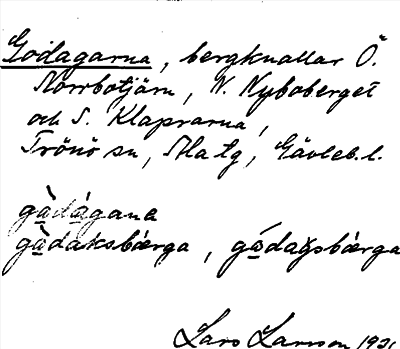 Godagarna, bergknallar Ö.
Norrbotjärn, N. Nyboberget
och S. Klaprarna,
Trönö sn, Ala tg, Gävleb. l.
gàdàgana
gàdaksbærga, gádagsbærga
Lars Larsson 1921